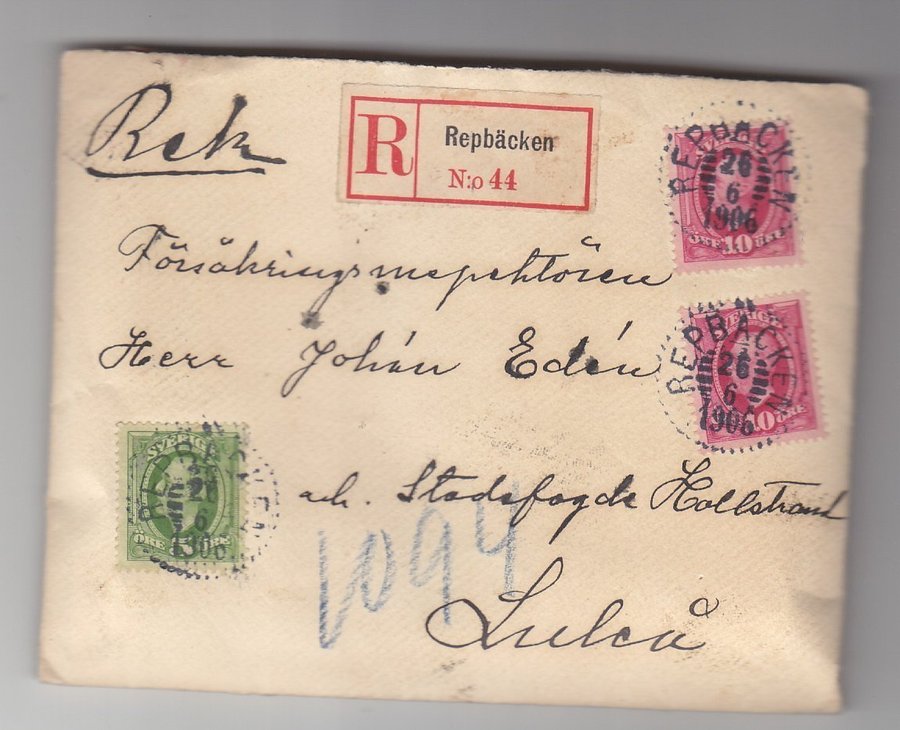 Rek
R Repbäcken
N:o 44
Försäkringsinspektören
Herr Johan Edén
adr. Stadsfogde Hollstrand
Luleå
1094
REPBÄCKEN
26
6
1906
SVERIGE
ÖRE 10 ÖRE
REPBÄCKEN
26
6
1906
SVERIGE
10 ÖRE
REPBÄCKEN
26
6
1906
SVERIGE
ÖRE 5 ÖRE